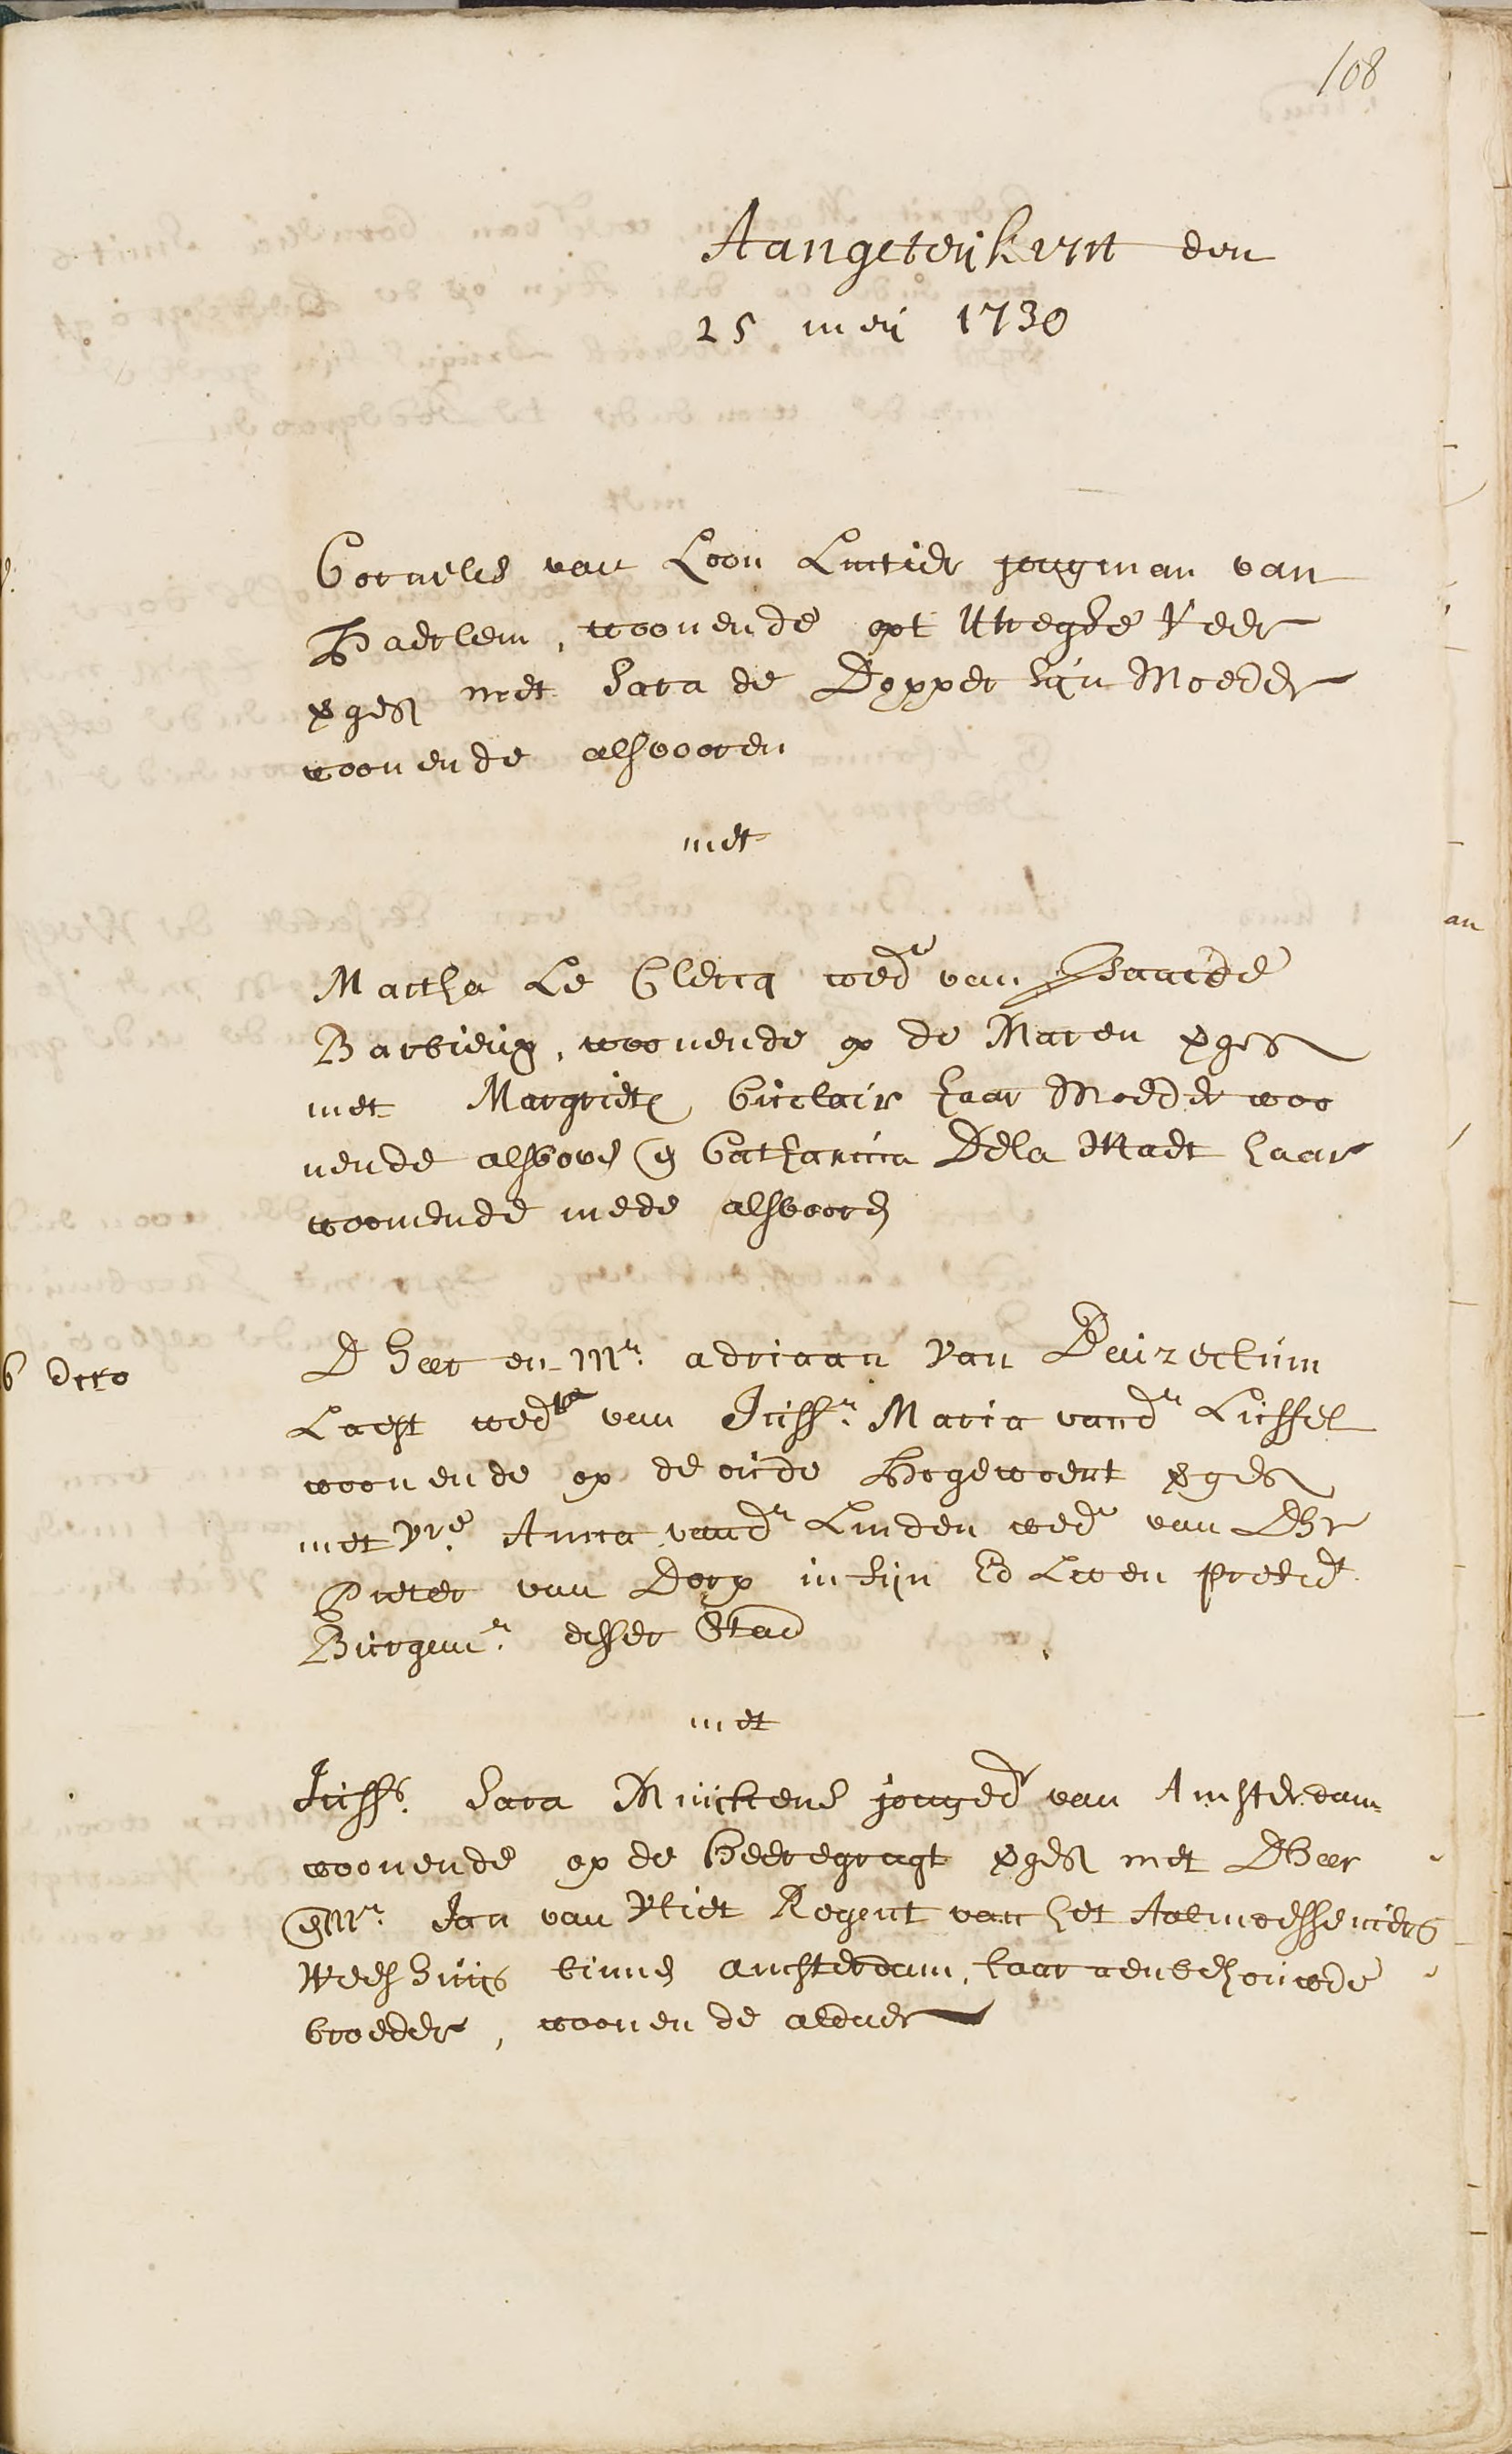 108
Aangeteijkent den
25 meij 1730
Cornelis van Loon Lintier jongman van
Haerlem, woonende opt Utregse Veer
vergest met Sara de Dopper sijn Moeder
woonende alsvooren
met
Martha Le Clercq wedᵉ van Isaacde
Barbieux, woonende op de Maren vergest
met Margriete Cuclair haar Moeder woo
nende alsboven en Catharina Dela Madt haar
woonende mede alsvooren
6 dito
D Heer en Mʳ. adriaan Van Buizeclum
Laest wedʳ van Juffʳ. Maria vandʳ Lussel
woonende op de oude Hogewoert vergest
met Vrᵉ. Anna vandʳ Linden wedᵉ van DHr
Pieter van Dorp in sijn Ed Leven presidᵗ
Burgemʳ. deser Stad
met
Juffʳ. Sara Muijkens jongedʳ van Amsterdam
woonende op de Heeregragt vergest met DHeer
en Mʳ. Jan van Vliet Regent van het Aalmoesseniers
Weeshuijs binnen amsterdam, haar aenbehouwde
broeder, woonende aldaer